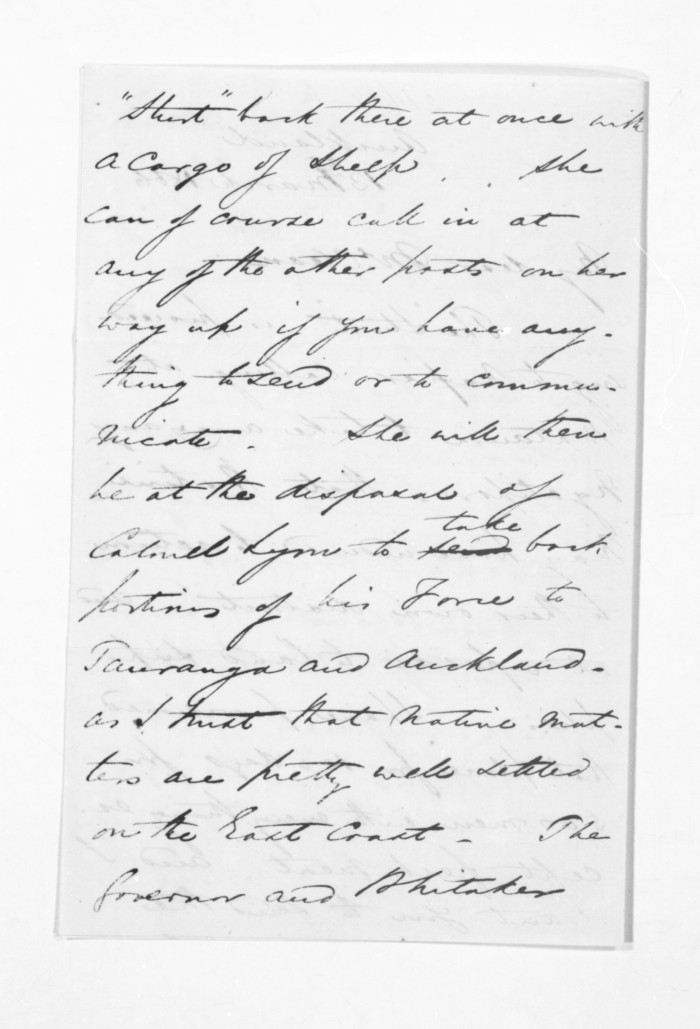 "Sturt" back there at once with
a Cargo of Sheep. She
can of course call in at
any of the other posts on her
way up if you have any-
thing to send or to commu-
nicate. She will then
be at the disposal of
Colonel Lyon to send take back
portions of his Force to
Tauranga and Auckland-
as I trust that Native mat-
ters are pretty well settled
on the East Coast - The
Governor and Whitaker